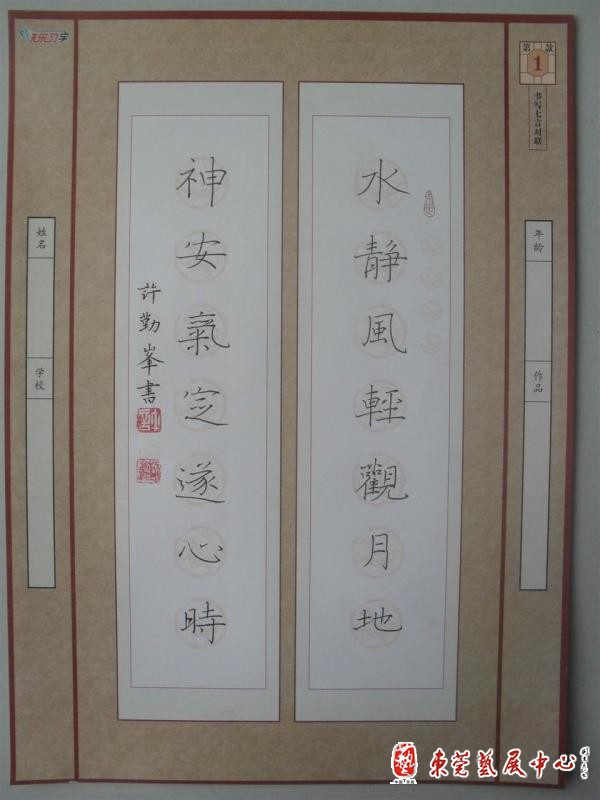 快乐习字
第1款
书写七言对联
年龄
作品
水静風輕觀月地
神安氣定遂心時
許勤峯書
姓名
学校
東莞藝展中心